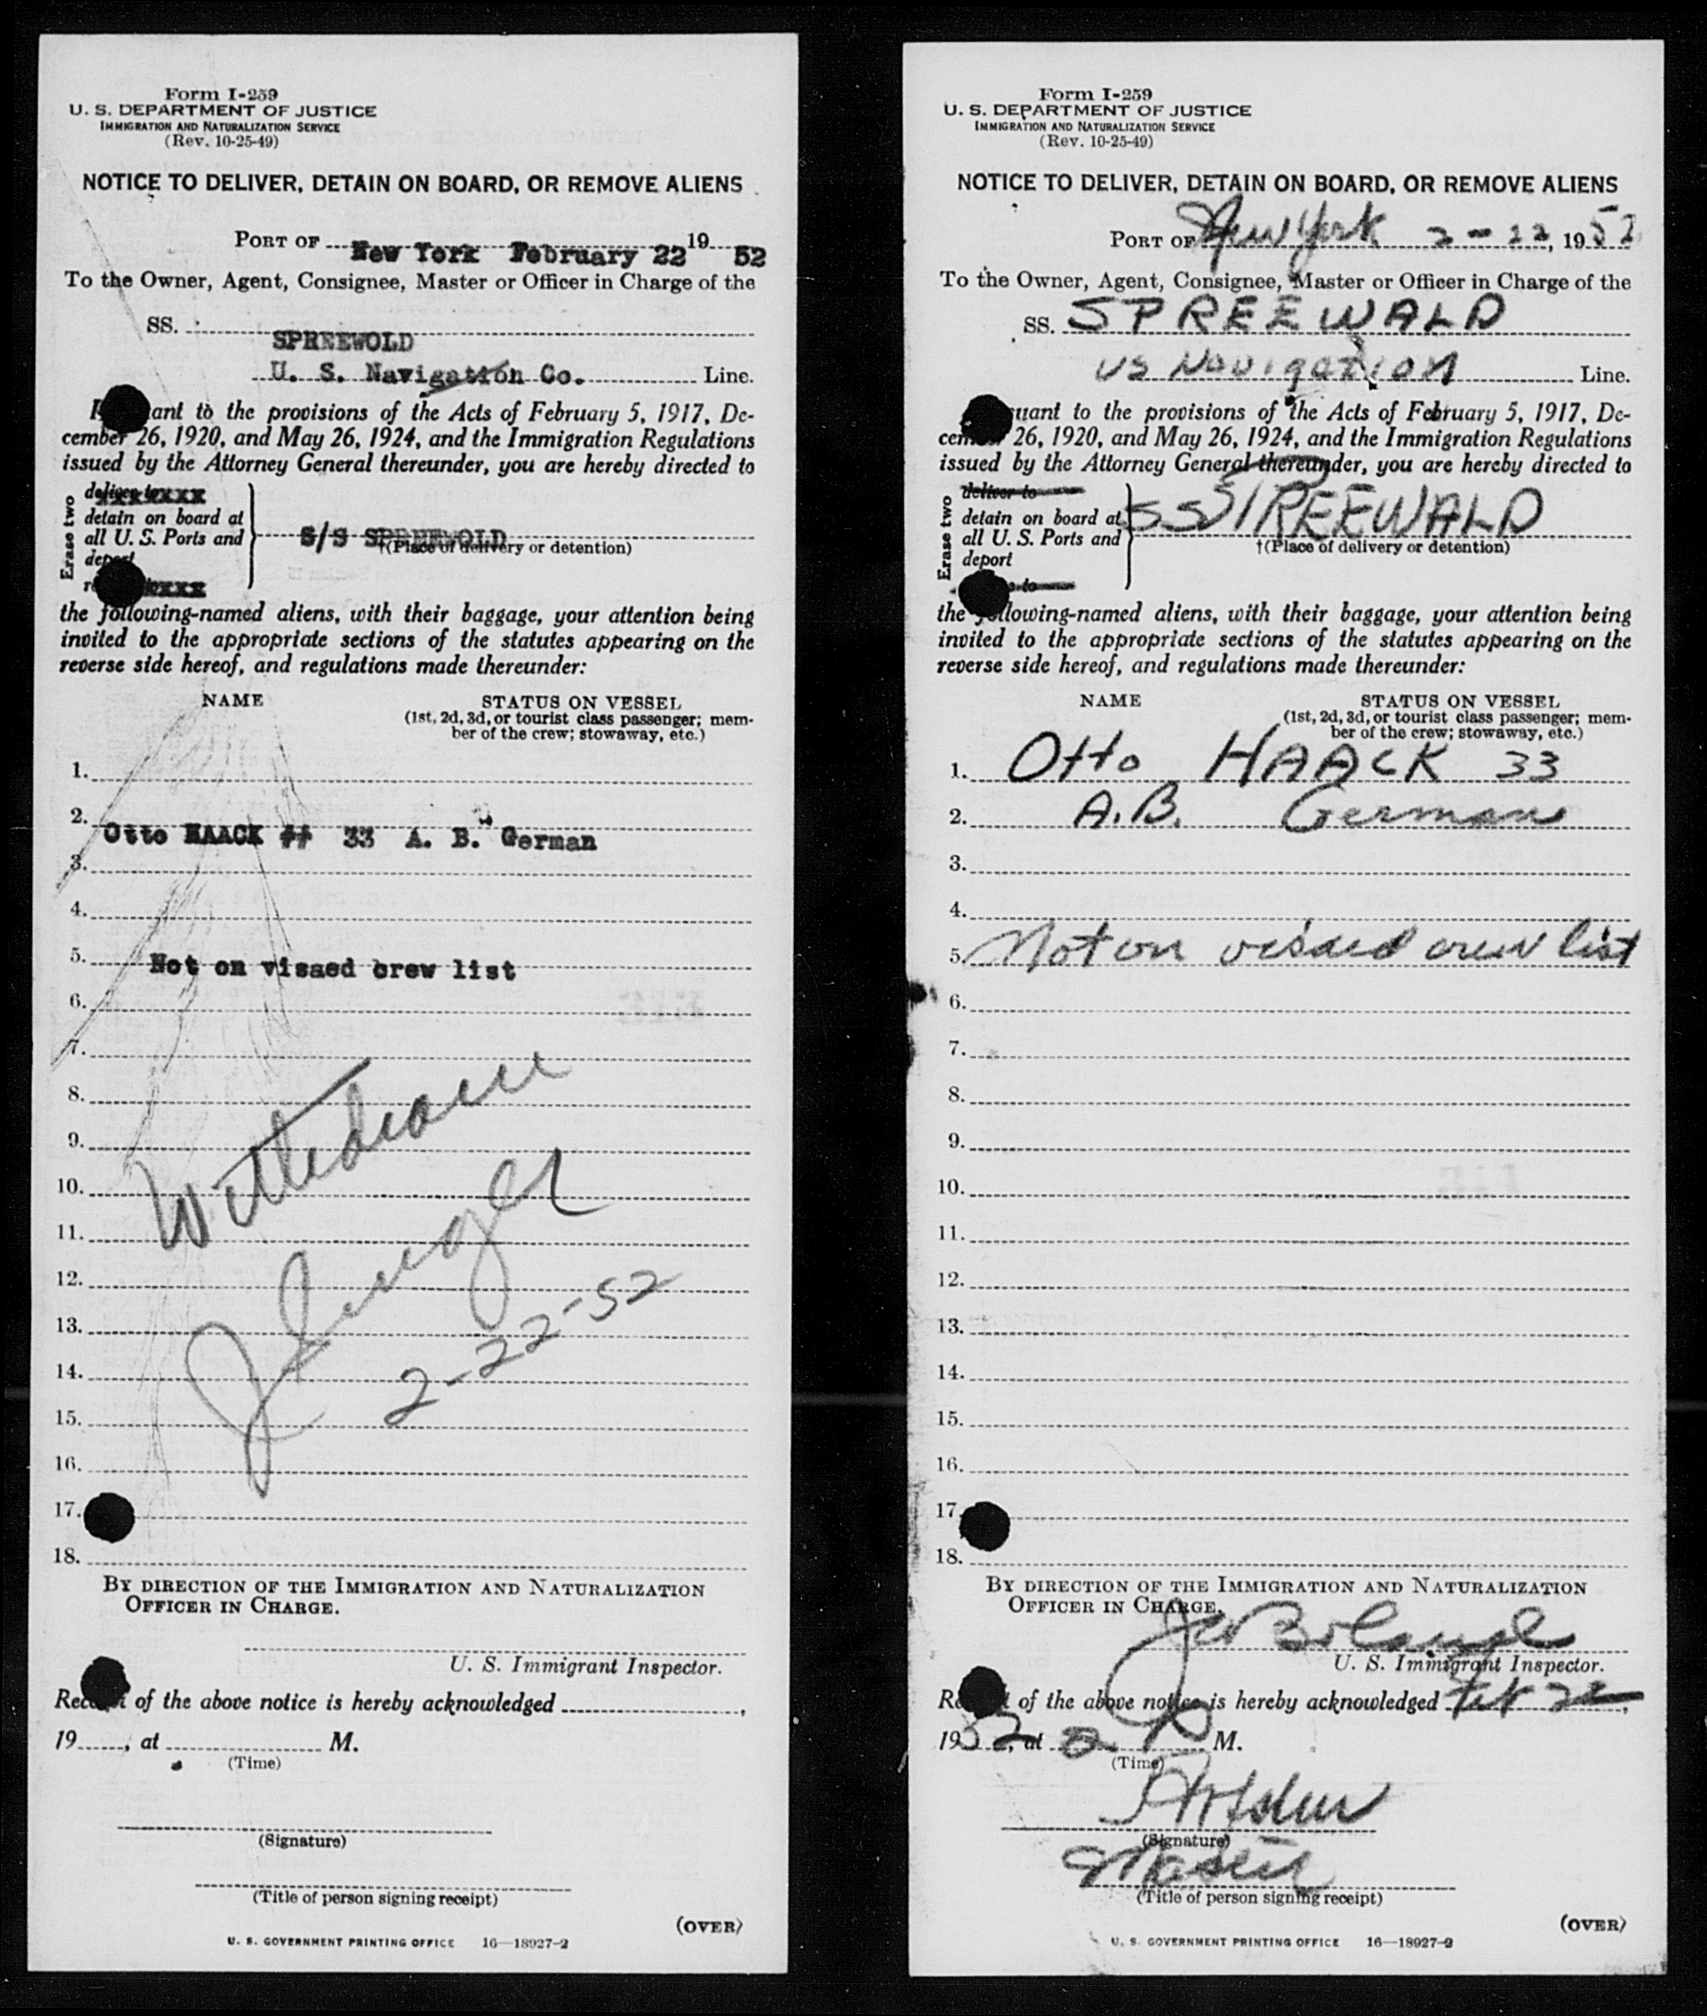 Form I-259
U. S. DEPARTMENT OF JUSTICE
IMMIGRATION AND NATURALIZATION SERVICE
(Rev. 10-25-49)
NOTICE TO DELIVER, DETAIN ON BOARD, OR REMOVE ALIENS
PORT OF New York February 22 19 52
To the Owner, Agent, Consignee, Master or Officer in Charge of the
SS. SPREEWOLD
U. S. Navigation Co. Line.
ant to the provisions of the Acts of February 5, 1917, De-
cember 26, 1920, and May 26, 1924, and the Immigration Regulations
issued by the Attorney General thereunder, you are hereby directed to
Erase two
deliver to
detain on board at
all U. S. Ports and
deport
S/S SPREEWOLD
†(Place of delivery or detention)
the following-named aliens, with their baggage, your attention being
invited to the appropriate sections of the statutes appearing on the
reverse side hereof, and regulations made thereunder:
NAME STATUS ON VESSEL
(1st, 2d, 3d, or tourist class passenger; mem-
ber of the crew; stowaway, etc.)
1.
2.
Otto HAACK ## 33 A. B. German
3.
4.
5. Not on visaed crew list
6.
7.
8.
9.
10.
11.
12.
13.
2-22-52
14.
15.
16.
17.
18.
BY DIRECTION OF THE IMMIGRATION AND NATURALIZATION
OFFICER IN CHARGE.
U. S. Immigrant Inspector.
of the above notice is hereby acknowledged ,
19 , at M.
(Time)
(Signature)
(Title of person signing receipt)
(OVER)
U. S. GOVERNMENT PRINTING OFFICE 16—18927-2
Form I-259
U. S. DEPARTMENT OF JUSTICE
IMMIGRATION AND NATURALIZATION SERVICE
(Rev. 10-25-49)
NOTICE TO DELIVER, DETAIN ON BOARD, OR REMOVE ALIENS
PORT OF New York 2-22, 19 52
To the Owner, Agent, Consignee, Master or Officer in Charge of the
SS. SPREEWALD
US Navigation Line.
uant to the provisions of the Acts of February 5, 1917, De-
cember 26, 1920, and May 26, 1924, and the Immigration Regulations
issued by the Attorney General thereunder, you are hereby directed to
Erase two
deliver to
detain on board at
all U. S. Ports and
deport
to
SS SPREEWALD
†(Place of delivery or detention)
the following-named aliens, with their baggage, your attention being
invited to the appropriate sections of the statutes appearing on the
reverse side hereof, and regulations made thereunder:
NAME STATUS ON VESSEL
(1st, 2d, 3d, or tourist class passenger; mem-
ber of the crew; stowaway, etc.)
1. Otto HAACK 33
2. A.B. German
3.
4.
5. Not on visaed crew list
6.
7.
8.
9.
10.
11.
12.
13.
14.
15.
16.
17.
18.
BY DIRECTION OF THE IMMIGRATION AND NATURALIZATION
OFFICER IN CHARGE.
U. S. Immigrant Inspector.
of the above notice is hereby acknowledged Feb 22,
1952, at 2 P M.
(Time)
(Signature)
Master
(Title of person signing receipt)
(OVER)
U. S. GOVERNMENT PRINTING OFFICE 16—18927-2